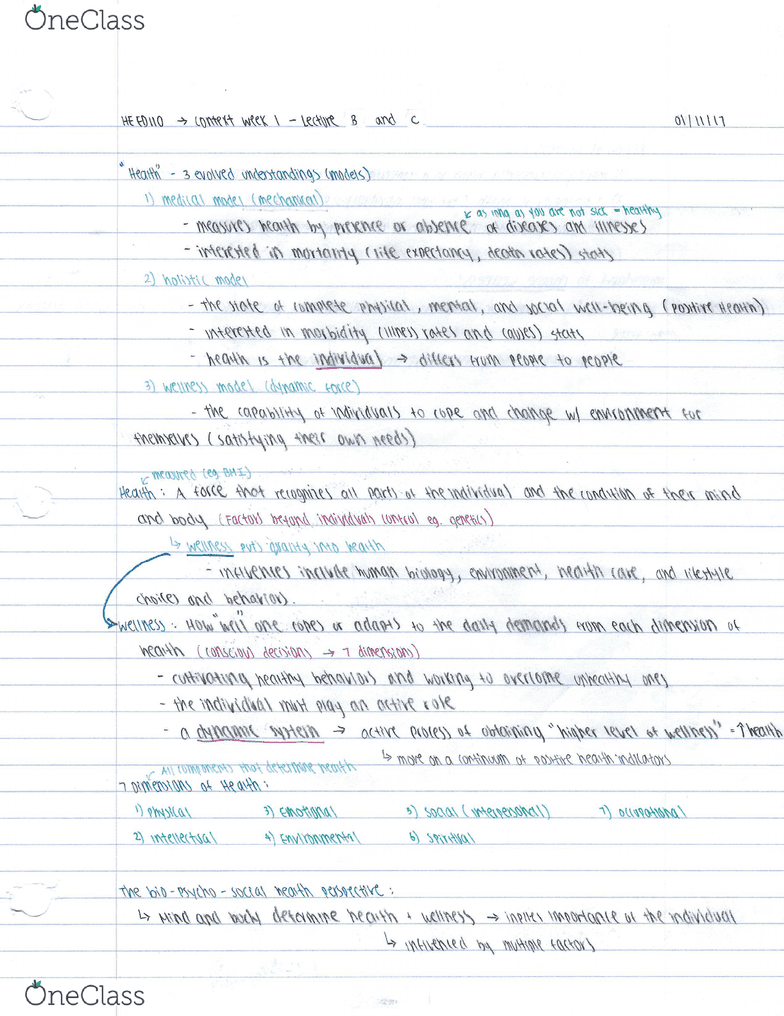 OneClass
HEED110 → content week 1 - Lecture B and C 01/11/17
"Health" - 3 evolved understandings (models)
1) medical model (mechanical)
↙ as long as you are not sick = healthy
- measures health by presence or absence of diseases and illnesses
- interested in mortality (life expectancy, death rates) stats
2) holistic model
- the state of complete physical, mental, and social well-being (positive health)
- interested in morbidity (illness rates and causes) stats
- health is the individual → differs from people to people
3) wellness model (dynamic force)
- the capability of individuals to cope and change w/ environment for
themselves (satisfying their own needs)
↙ measured (eg BMI)
Health: A force that recognizes all parts of the individual and the condition of their mind
and body (Factors beyond individuals control eg. genetics)
↳ wellness puts quality into health
- influences include human biology, environment, health care, and lifestyle
choices and behaviors.
wellness: How "well" one copes or adapts to the daily demands from each dimension of
health (conscious decisions → 7 dimensions)
- cultivating healthy behaviors and working to overcome unhealthy ones
- the individual must play an active role
- a dynamic system → active process of obtaining "higher level of wellness" = ↑health
↳ more on a continuum of positive health indicators
↙ All components that determine health
7 Dimensions of Health:
1) Physical 3) Emotional 5) Social (interpersonal) 7) occupational
2) intellectual 4) Environmental 6) Spiritual
The bio-psycho-social health perspective:
↳ Mind and body determine health + wellness → implies importance of the individual
↳ influenced by multiple factors
OneClass